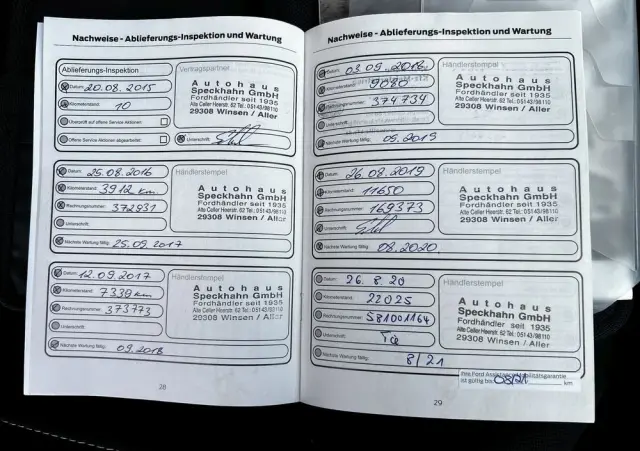 Nachweise - Ablieferungs-Inspektion und Wartung
Ablieferungs-Inspektion
Datum: 20.08.2015
Kilometerstand: 10
Überprüft auf offene Service Aktionen
Offene Service Aktionen abgearbeitet:
Vertragspartner
Autohaus
Speckhahn GmbH
Fordhändler seit 1935
Alte Celler Heerstr. 62 Tel.: 05143/98110
29308 Winsen / Aller
Unterschrift:
Datum: 25.08.2016
Kilometerstand: 3912 km
Rechnungsnummer: 372931
Unterschrift:
Nächste Wartung fällig: 25.09.2017
Händlerstempel
Autohaus
Speckhahn GmbH
Fordhändler seit 1935
Alte Celler Heerstr. 62 Tel.: 05143/98110
29308 Winsen / Aller
Datum: 12.09.2017
Kilometerstand: 7339 km
Rechnungsnummer: 373773
Unterschrift:
Nächste Wartung fällig: 09.2018
Händlerstempel
Autohaus
Speckhahn GmbH
Fordhändler seit 1935
Alte Celler Heerstr. 62 Tel.: 05143/98110
29308 Winsen / Aller
28
Nachweise - Ablieferungs-Inspektion und Wartung
Datum: 03.09.2018
Kilometerstand: 9080
Rechnungsnummer: 374734
Unterschrift:
Nächste Wartung fällig: 09.2019
Händlerstempel
Autohaus
Speckhahn GmbH
Fordhändler seit 1935
Alte Celler Heerstr. 62 Tel.: 05143/98110
29308 Winsen / Aller
Datum: 26.08.2019
Kilometerstand: 11650
Rechnungsnummer: 169373
Unterschrift:
Nächste Wartung fällig: 08.2020
Händlerstempel
Autohaus
Speckhahn GmbH
Fordhändler seit 1935
Alte Celler Heerstr. 62 Tel.: 05143/98110
29308 Winsen / Aller
Datum: 26.8.20
Kilometerstand: 22025
Rechnungsnummer: 581001164
Unterschrift:
Nächste Wartung fällig: 8/21
Händlerstempel
Autohaus
Speckhahn GmbH
Fordhändler seit 1935
Alte Celler Heerstr. 62 Tel.: 05143/98110
29308 Winsen / Aller
Ihre Ford Assistance Mobilitätsgarantie
ist gültig bis: 08/21 km
29